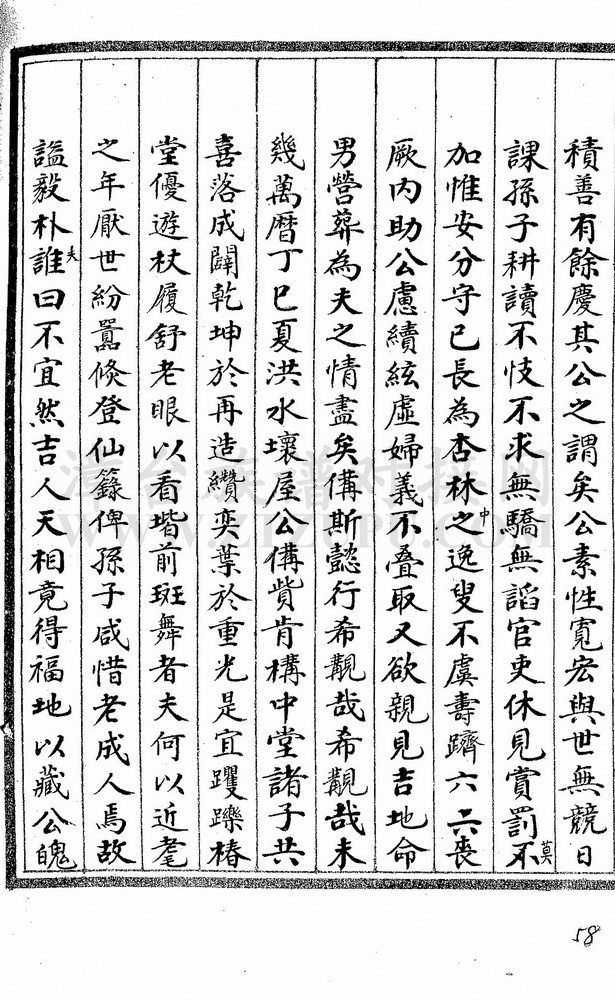 積善有餘慶其公之謂矣公素性寬宏與世無競日
課孫子耕讀不忮不求無驕無諂官吏休見賞罰不莫
加惟安分守己長為杏林之中逸叟不虞壽躋六六喪
厥內助公慮續絃虛婦義不叠取又欲親見吉地命
男營葬為夫之情盡矣備斯懿行希覯哉希覯哉未
幾萬曆丁巳夏洪水壞屋公備貲肯構中堂諸子共
喜落成闢乾坤於再造纘奕葉於重光是宜躩躒椿
堂優遊杖履舒老眼以看堦前斑舞者夫何以近耄
之年厭世紛囂倏登仙籙俾孫子咸惜老成人焉故
謚毅朴誰夫曰不宜然吉人天相竟得福地以藏公魄
58